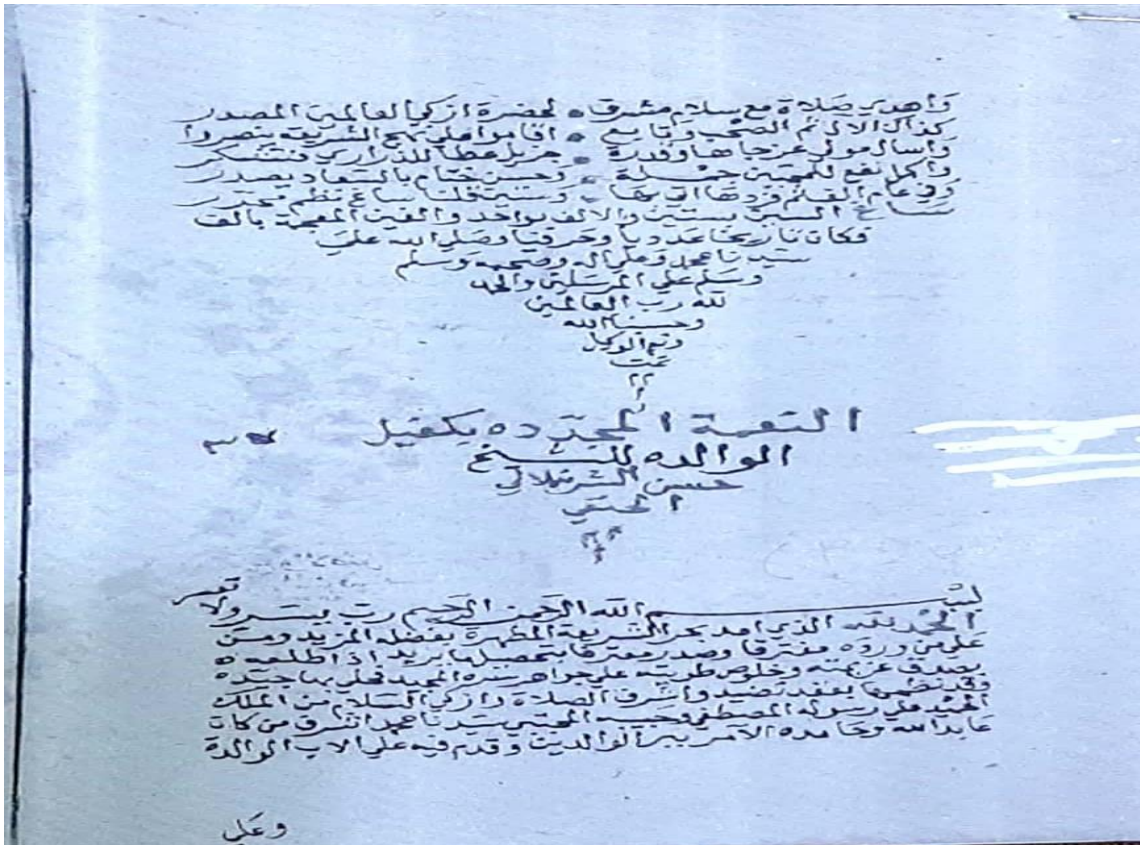 وأهدي صلاة مع سلام مشرق * لحضرة ازكي العالمين المصدر
كذا الال ثم الصحب وتابع * اقاموا علي نهج الشريعه ينصروا
واسال مولي عز جاها وقدرة * جزيل عطا للذراري فتشكر
واكمل نفع للمحبين جملة * وحسن ختام بالسعاد يصدر
وفي عام الف ثم فردها اتي بها * وستيتخلنا ساغ نظم محرر
ساغ السين بستين والالف بواحد والغين المعجمة بالف
فكان تاريخا عدديا وحرفيا وصلي الله علي
سيدنا محمد وعلي اله وصحبه وسلم
وسلم علي المرسلين والحمد
لله رب العالمين
وحسبنا الله
ونعم الوكيل
تمت
النعمة المجدده بكفيل
الوالده للشيخ
حسن الشرنبلالي
الحنفي
بسم الله الرحمن الرحيم رب يسر ولا تعسر
الحمد لله الذي امد بحر الشريعة المطهرة بفضله المزيد ومن
علي من ورده مغترفا وصدر معترفا بتحصيل ما يريد اذا طلعه
بصدق عزيمته وخلوص طويته علي جواهر سره المجيد فحلي بها جيده
وقد نظمها بعقد نضيد واشرف الصلاة وازكي السلام من الملك
الحميد علي رسوله المصطفي وحبيبه المجتبي سيدنا محمد اشرف من كان
عابدا لله وحامده الامر ببر الوالدين وقدم فيه علي الاب الوالدة
وعلي